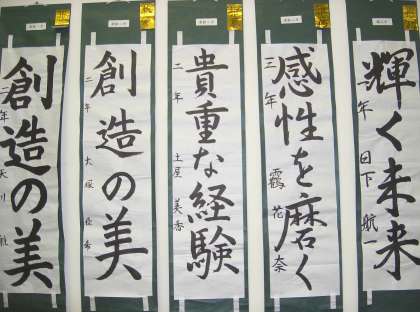 輝く未来
二年 日下 航一
感性を磨く
三年 靍 花奈
貴重な経験
二年 土屋 美香
創造の美
二年 大塚
創造の美
二年